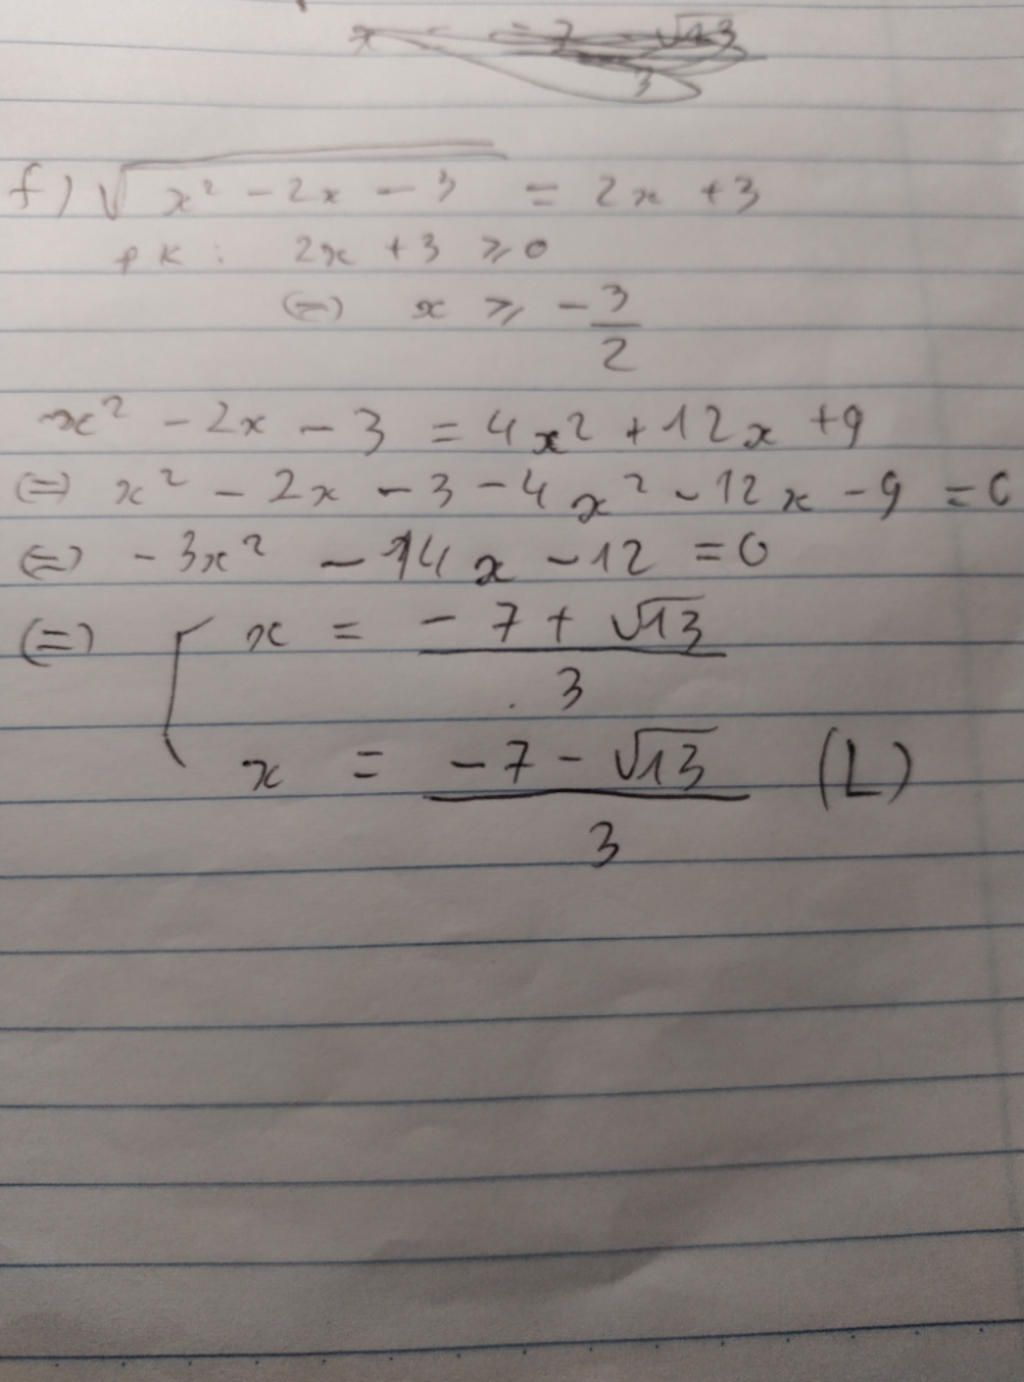 x = -7 - √13
3
f) √x² - 2x - 3 = 2x + 3
ĐK : 2x + 3 ⩾ 0
(=) x ⩾ - 3/2
x² - 2x - 3 = 4x² + 12x + 9
(=) x² - 2x - 3 - 4x² - 12x - 9 = 0
(=) - 3x² - 14x - 12 = 0
(=) [ x = - 7 + √13 / 3
x = - 7 - √13 / 3 (L)